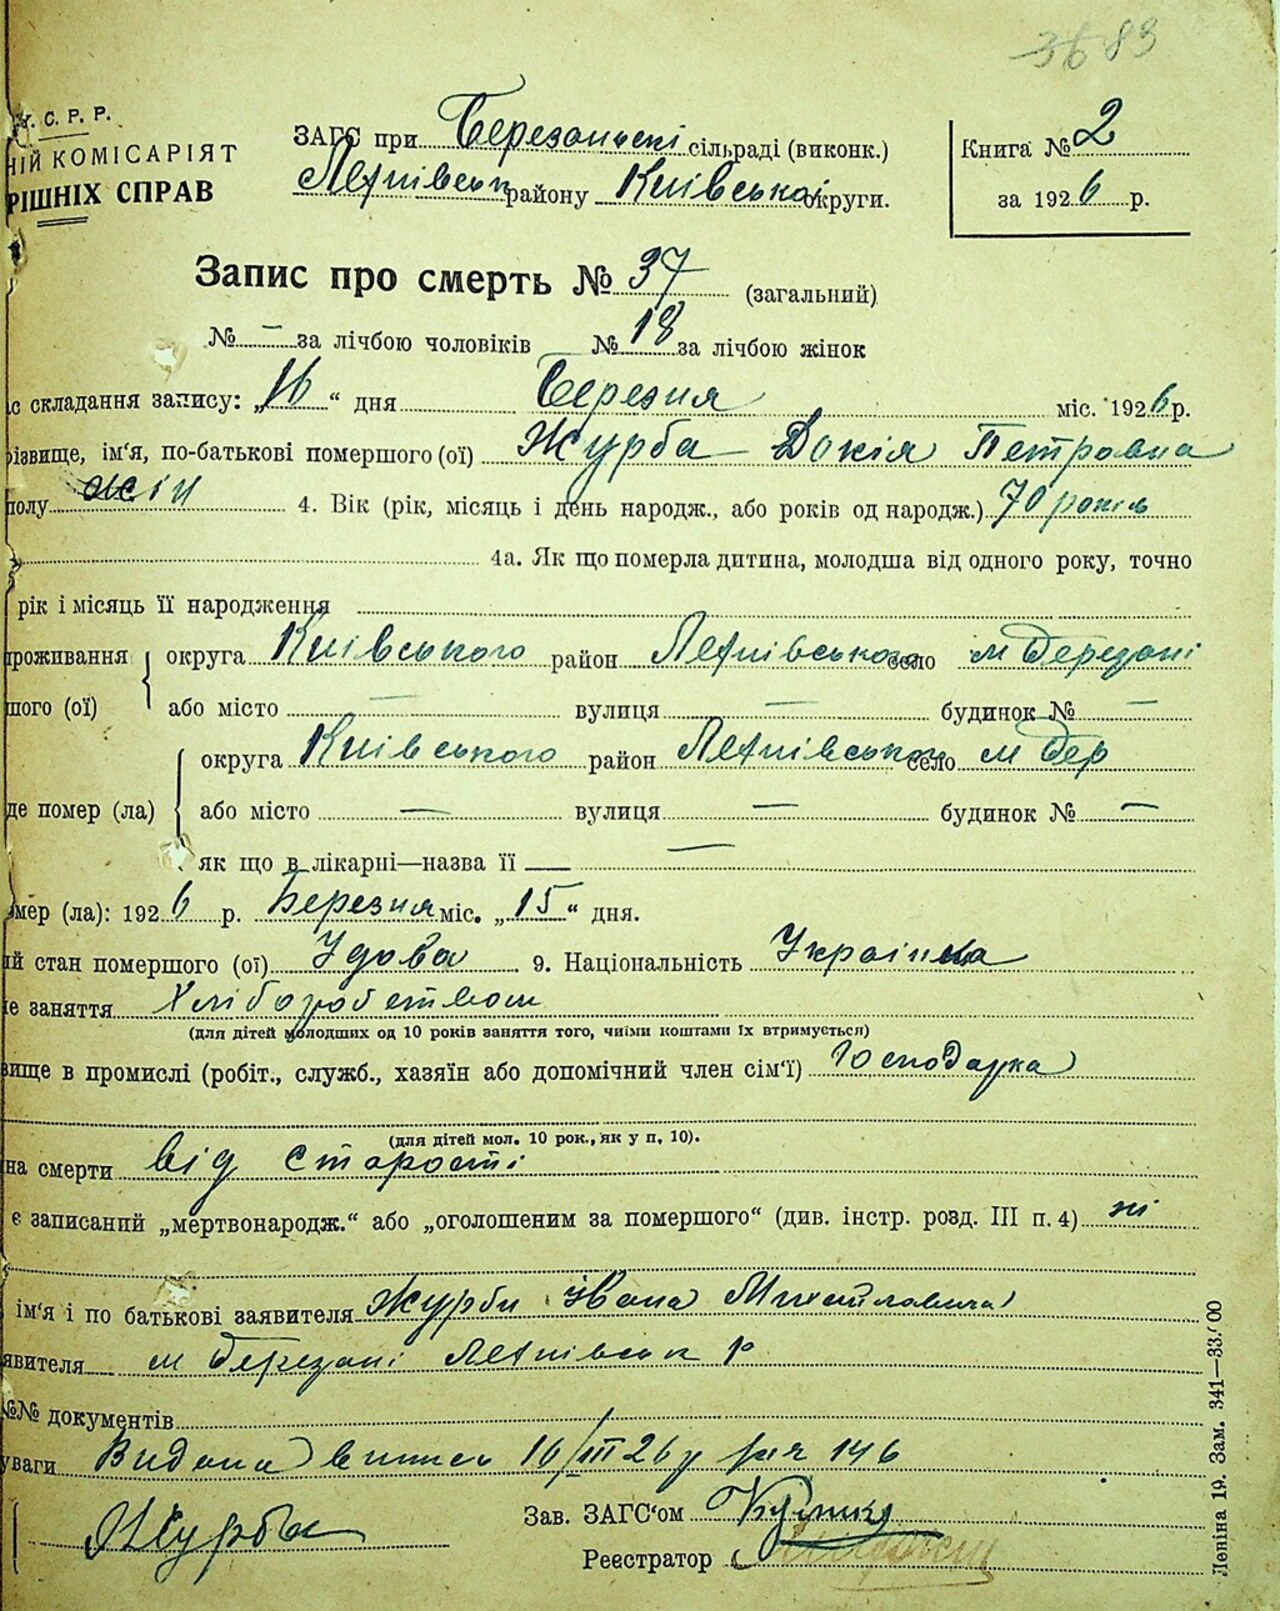 3683
У. С. Р. Р.
НІЙ КОМІСАРІЯТ
РІШНІХ СПРАВ
ЗАГС при Березанській сільраді (виконк.)
району Київської округи.
Книга № 2
за 1926 р.
Запис про смерть № 37 (загальний)
№ — за лічбою чоловіків № 18 за лічбою жінок
ас складання запису: „16“ дня Березня міс. 1926 р.
різвище, ім'я, по-батькові помершого (ої) Журба Докія Петровна
полу жін 4. Вік (рік, місяць і день народж., або років од народж.) 70 років
4а. Як що померла дитина, молодша від одного року, точно
рік і місяць її народження
проживання округа Київського район село м Березані
шого (ої) або місто — вулиця — будинок № —
округа Київського район село м Бер
де помер (ла) або місто — вулиця — будинок № —
як що в лікарні—назва її — —
омер (ла): 1926 р. Березня міс. „15“ дня.
ий стан помершого (ої) Удова 9. Національність Українка
не заняття Хліборобством
(для дітей молодших од 10 років заняття того, чиїми коштами їх втримується)
вище в промислі (робіт., служб., хазяїн або допомічний член сім'ї) Господарка
(для дітей мол. 10 рок., як у п. 10).
на смерти від старости
є записаний „мертвонародж.“ або „оголошеним за помершого“ (див. інстр. розд. III п. 4) ні
ім'я і по батькові заявителя Журби Івана Михайловича
явителя м Березані р
№№ документів
уваги Видана витись 16/III 26 р 146
Журба
Зав. ЗАГС'ом
Реєстратор
Леніна 19. Зам. 341—33.'00